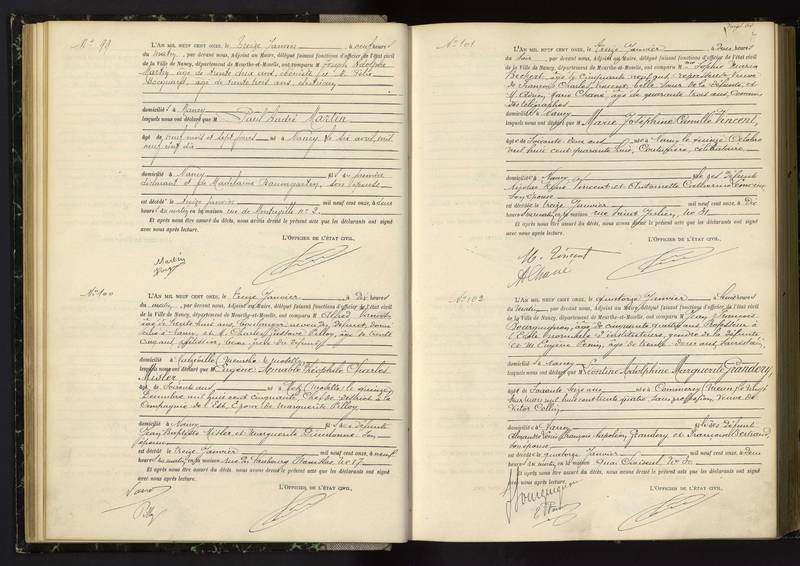 N° 99
L'AN MIL NEUF CENT ONZE, le treize Janvier à neuf heures
du matin, par devant nous, Adjoint au Maire, délégué faisant fonctions d'officier de l'état civil
de la Ville de Nancy, département de Meurthe-et-Moselle, ont comparu M Joseph Adolphe
Martin, âgé de trente deux ans, et M. Félix
Bocquard, âgé de trente trois ans,
domicilié s à Nancy
lesquels nous ont déclaré que M Paul André Martin
âgé de neuf mois et sept jours né à Nancy le six avril mil
neuf cent dix
domicilié à Nancy fils du premier
déclarant et de Madeleine Baumgarten, son épouse
est décédé le treize janvier mil neuf cent onze, à deux
heures du matin en sa maison rue de n° 2.
Et après nous être assuré du décès, nous avons dressé le présent acte que les déclarants ont signé
avec nous après lecture.
L'OFFICIER DE L'ÉTAT CIVIL,
Martin
N° 100
L'AN MIL NEUF CENT ONZE, le treize Janvier à Dix heures
du matin, par devant nous, Adjoint au Maire, délégué faisant fonctions d'officier de l'état civil
de la Ville de Nancy, département de Meurthe-et-Moselle, ont comparu M Alfred
âgé de trente huit ans, neveu du défunt, domi
cilié à Nancy et M Charles Gustave Pilloy, âgé de trente
cinq ans, beau frère du défunt
domicilié à (Meurthe & Moselle)
lesquels nous ont déclaré que M Eugène Aimable Théophile Charles
Mister
âgé de Soixante ans né à Metz (Moselle) le quinze
Décembre mil huit cent cinquante, Chef de district à la
Compagnie de l'Est, Epoux de Marguerite Pilloy
domicilié à Nancy fils des défunts
Jean Baptiste Mister et Marguerite Dieudonné son
épouse
est décédé le treize Janvier mil neuf cent onze, à neuf
heures du matin en sa maison rue du Faubourg Stanislas, No 17
Et après nous être assuré du décès, nous avons dressé le présent acte que les déclarants ont signé
avec nous après lecture.
L'OFFICIER DE L'ÉTAT CIVIL,
Pilloy
N° 101
L'AN MIL NEUF CENT ONZE, le treize Janvier à Deux heures
du soir, par devant nous, Adjoint au Maire, délégué faisant fonctions d'officier de l'état civil
de la Ville de Nancy, département de Meurthe-et-Moselle, ont comparu M Sophie Maria
Bechert, âgée de cinquante neuf ans, repasseuse, veuve
de François Charles Vincent, belle sœur de la défunte, et
M. Marie Chané, âgé de quarante trois ans, Commis
des télégraphes
domicilié s à Nancy
lesquels nous ont déclaré que M Marie Joséphine Camille Vincent,
âgée de Soixante deux ans née à Nancy le quinze Octobre
mil huit cent quarante huit, Couturière, célibataire
domiciliée à Nancy fille des défunts
Nicolas René Vincent et Antoinette Catherine
son épouse
est décédée le treize Janvier mil neuf cent onze, à Dix
heures du matin, en sa maison rue Saint Julien, No 31
Et après nous être assuré du décès, nous avons dressé le présent acte que les déclarants ont signé
avec nous après lecture.
L'OFFICIER DE L'ÉTAT CIVIL,
M. Vincent
A Chané
N° 102
L'AN MIL NEUF CENT ONZE, le quatorze Janvier à heures
du matin, par devant nous, Adjoint au Maire, délégué faisant fonctions d'officier de l'état civil
de la Ville de Nancy, département de Meurthe-et-Moselle, ont comparu M Jean François
Bourguignon, âgé de cinquante quatre ans, Professeur à
l'Ecole Normale d'instituteurs, gendre de la défunte,
et M Eugène âgé de trente deux ans,
domicilié s à Nancy
lesquels nous ont déclaré que M Léontine Adolphine Marguerite Grandory,
âgée de Soixante Seize ans née à Commercy (Meuse) le vingt
mil huit cent trente quatre, sans profession, Veuve de
Victor Collin
domiciliée à Nancy fille des défunts
Alexandre Louis François Napoléon Grandory, et Françoise Bertrand,
son épouse
est décédée le quatorze Janvier mil neuf cent onze, à deux
heures du matin, en sa maison Quai Choiseul, No 30
Et après nous être assuré du décès, nous avons dressé le présent acte que les déclarants ont signé
avec nous après lecture.
L'OFFICIER DE L'ÉTAT CIVIL,
Bourguignon